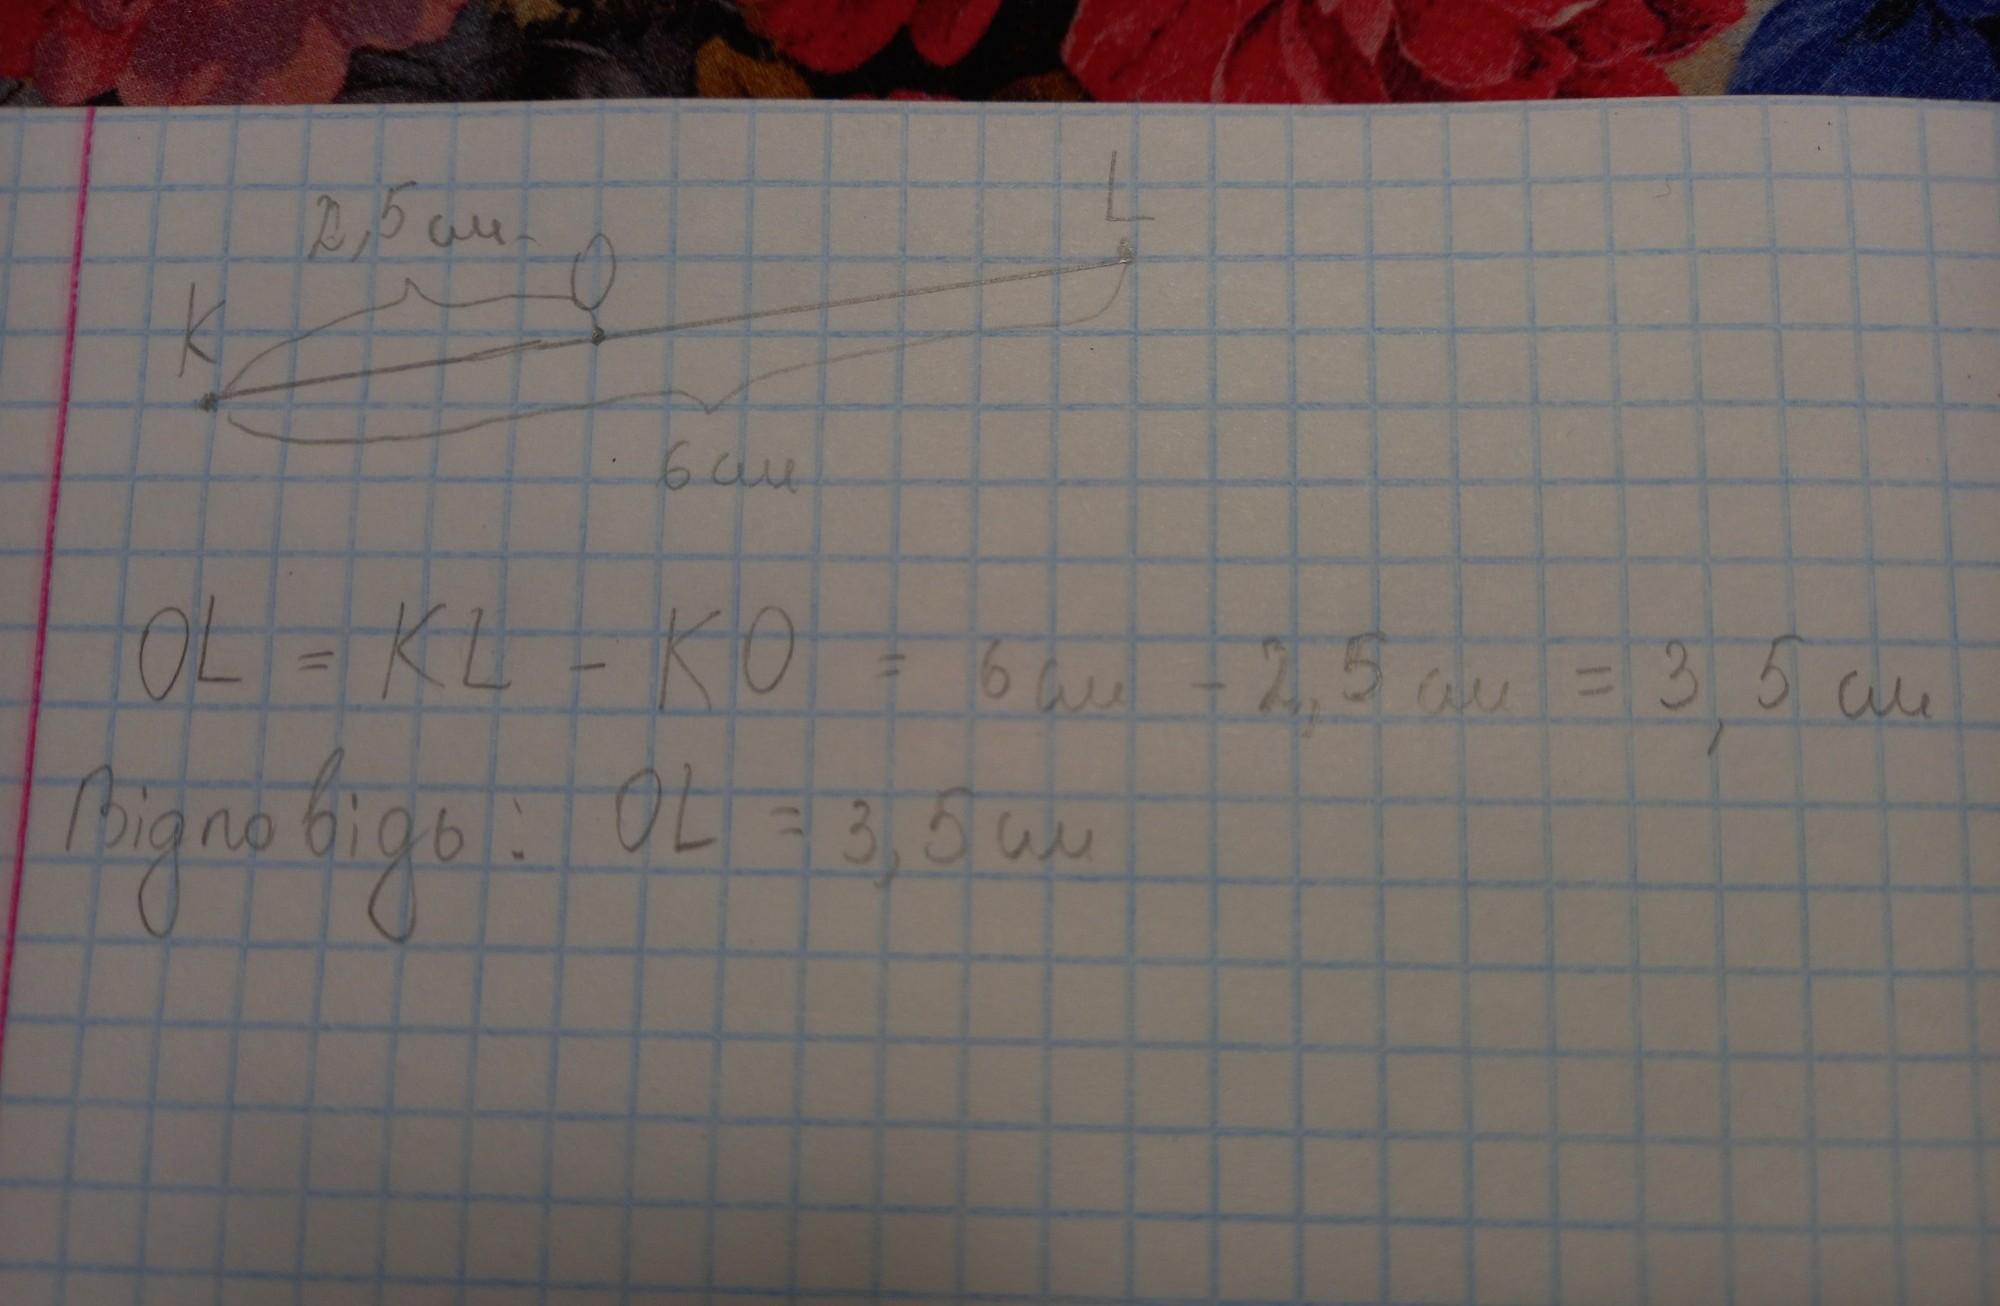 L
2,5 см.
O
K
6 см
OL = KL - KO = 6 см - 2,5 см = 3,5 см
Відповідь: OL = 3,5 см